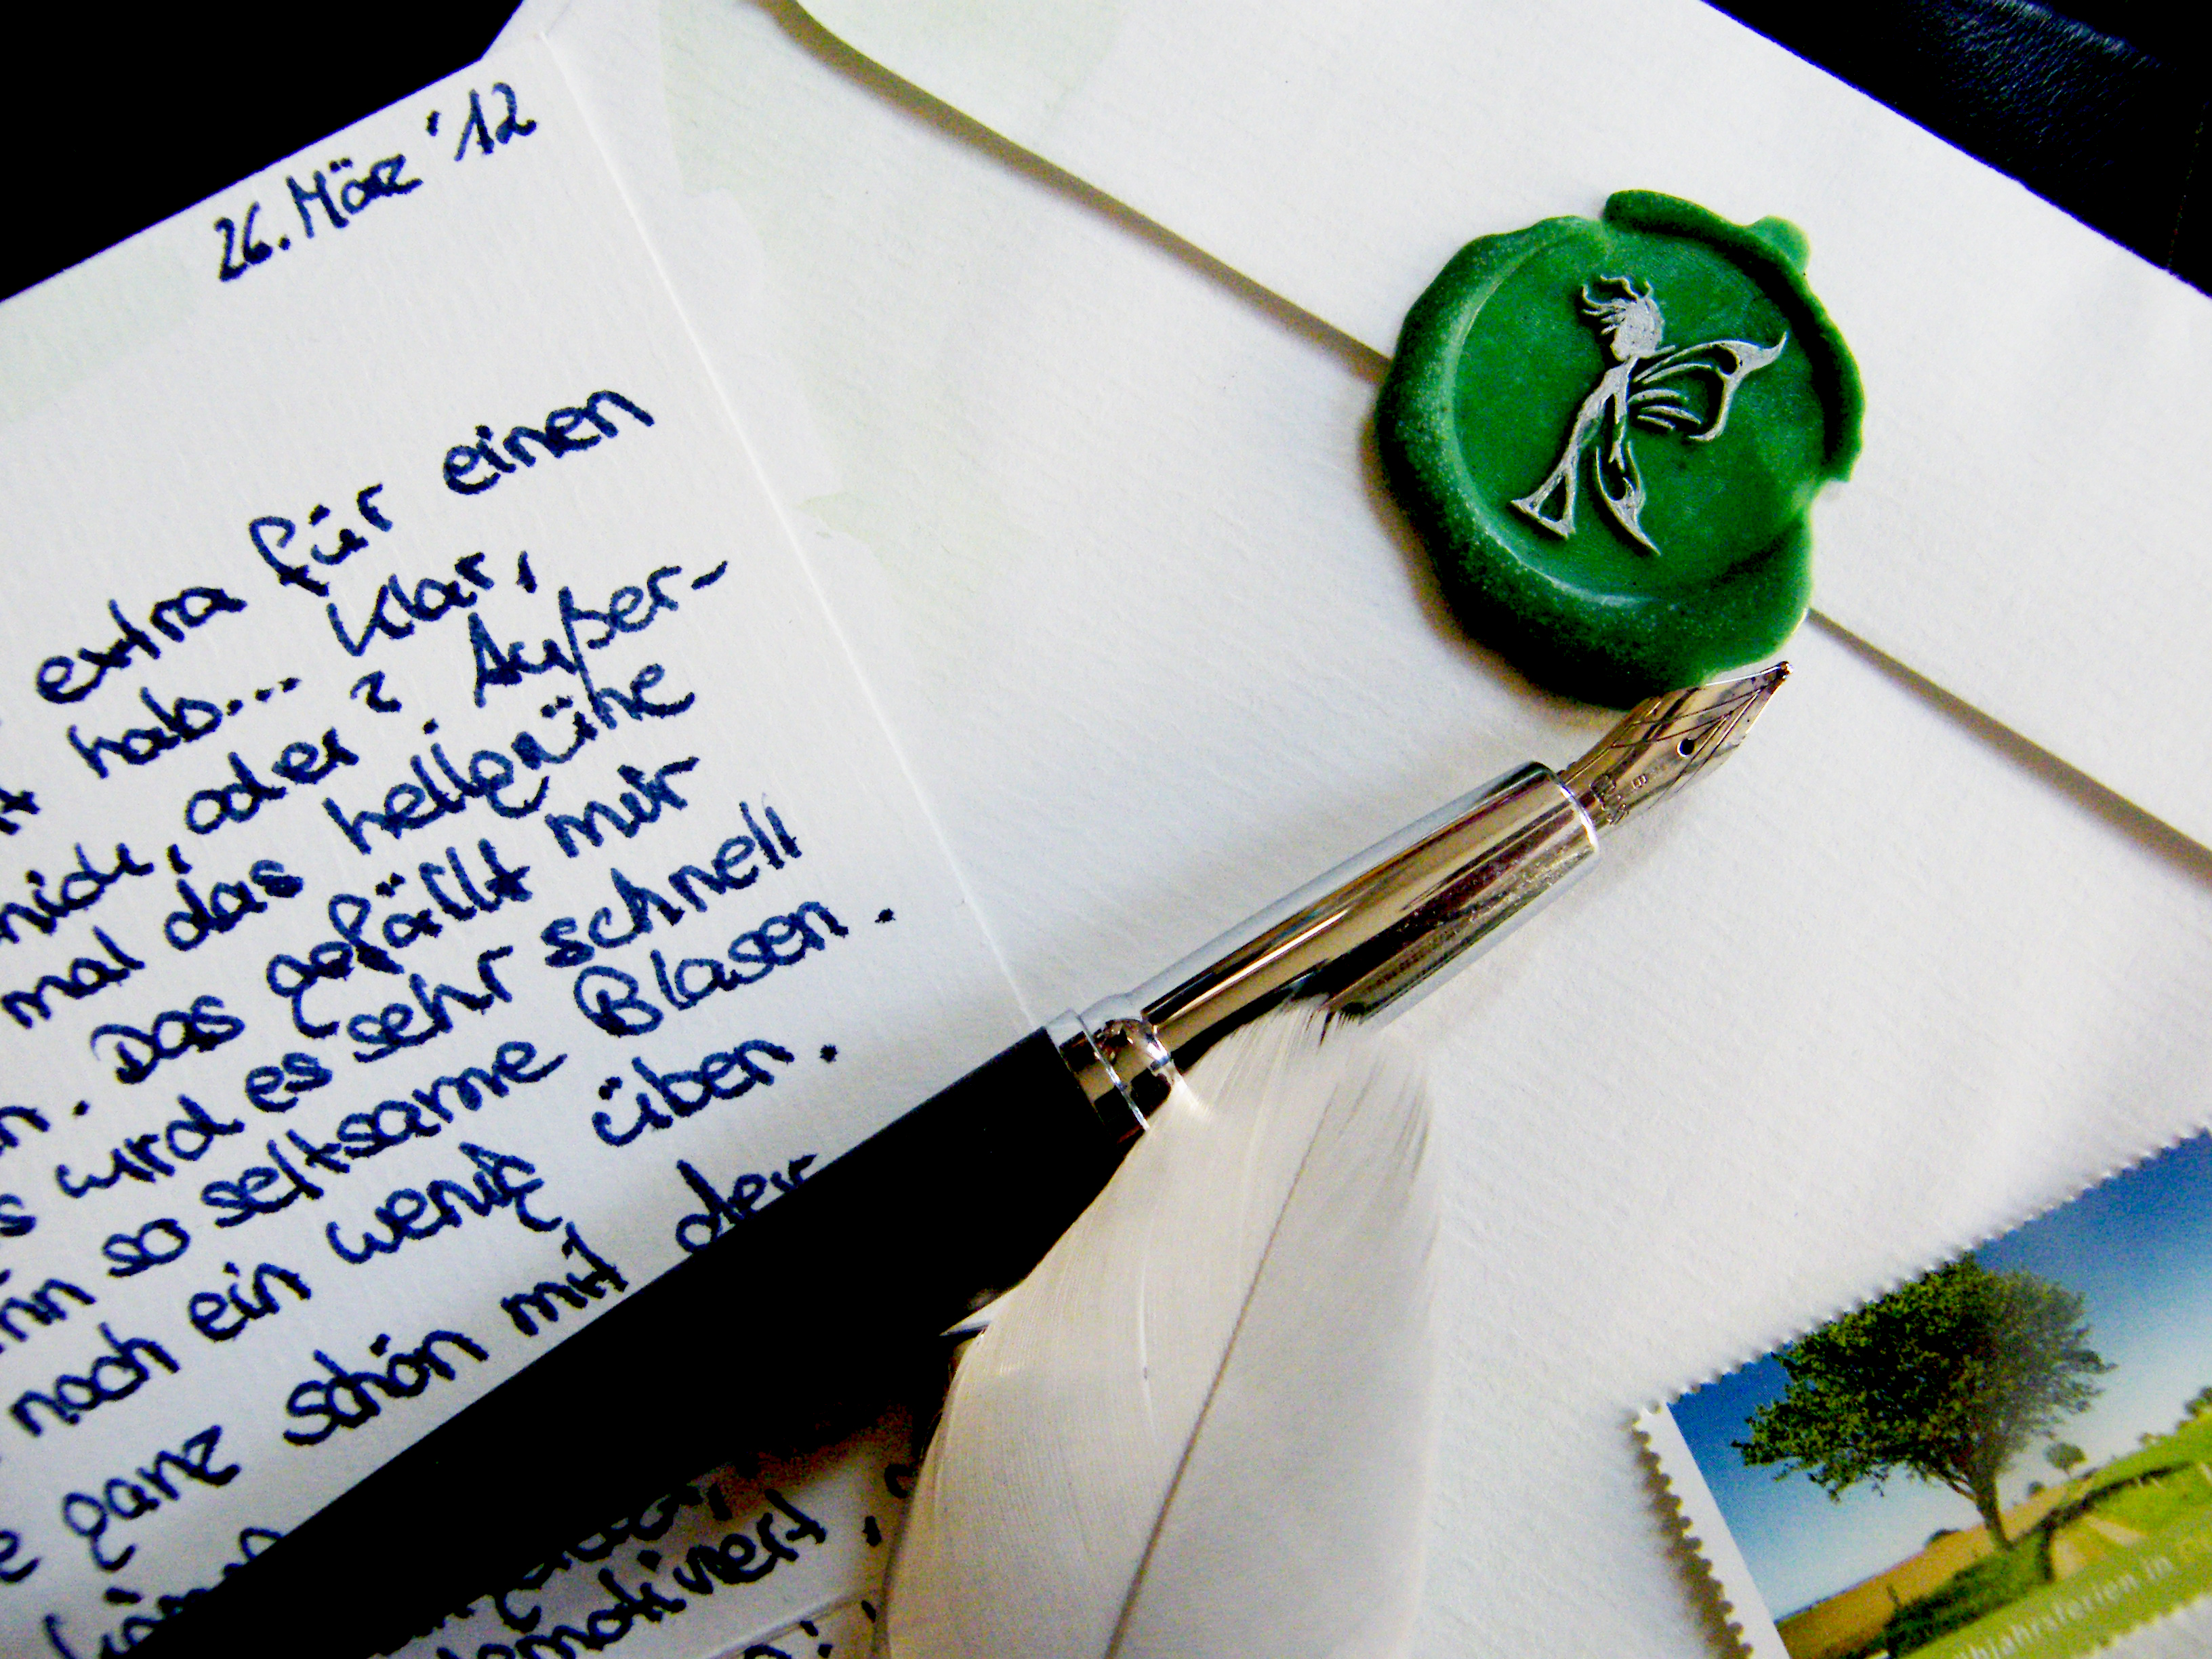 26. Mär '12
extra für einen
hab... Klar,
mich, oder? Außer-
mal das hellgrüne
Das gefällt mir
wird es sehr schnell
so seltsame Blasen.
noch ein wenig üben.
ganz schön mit der
demotiviert